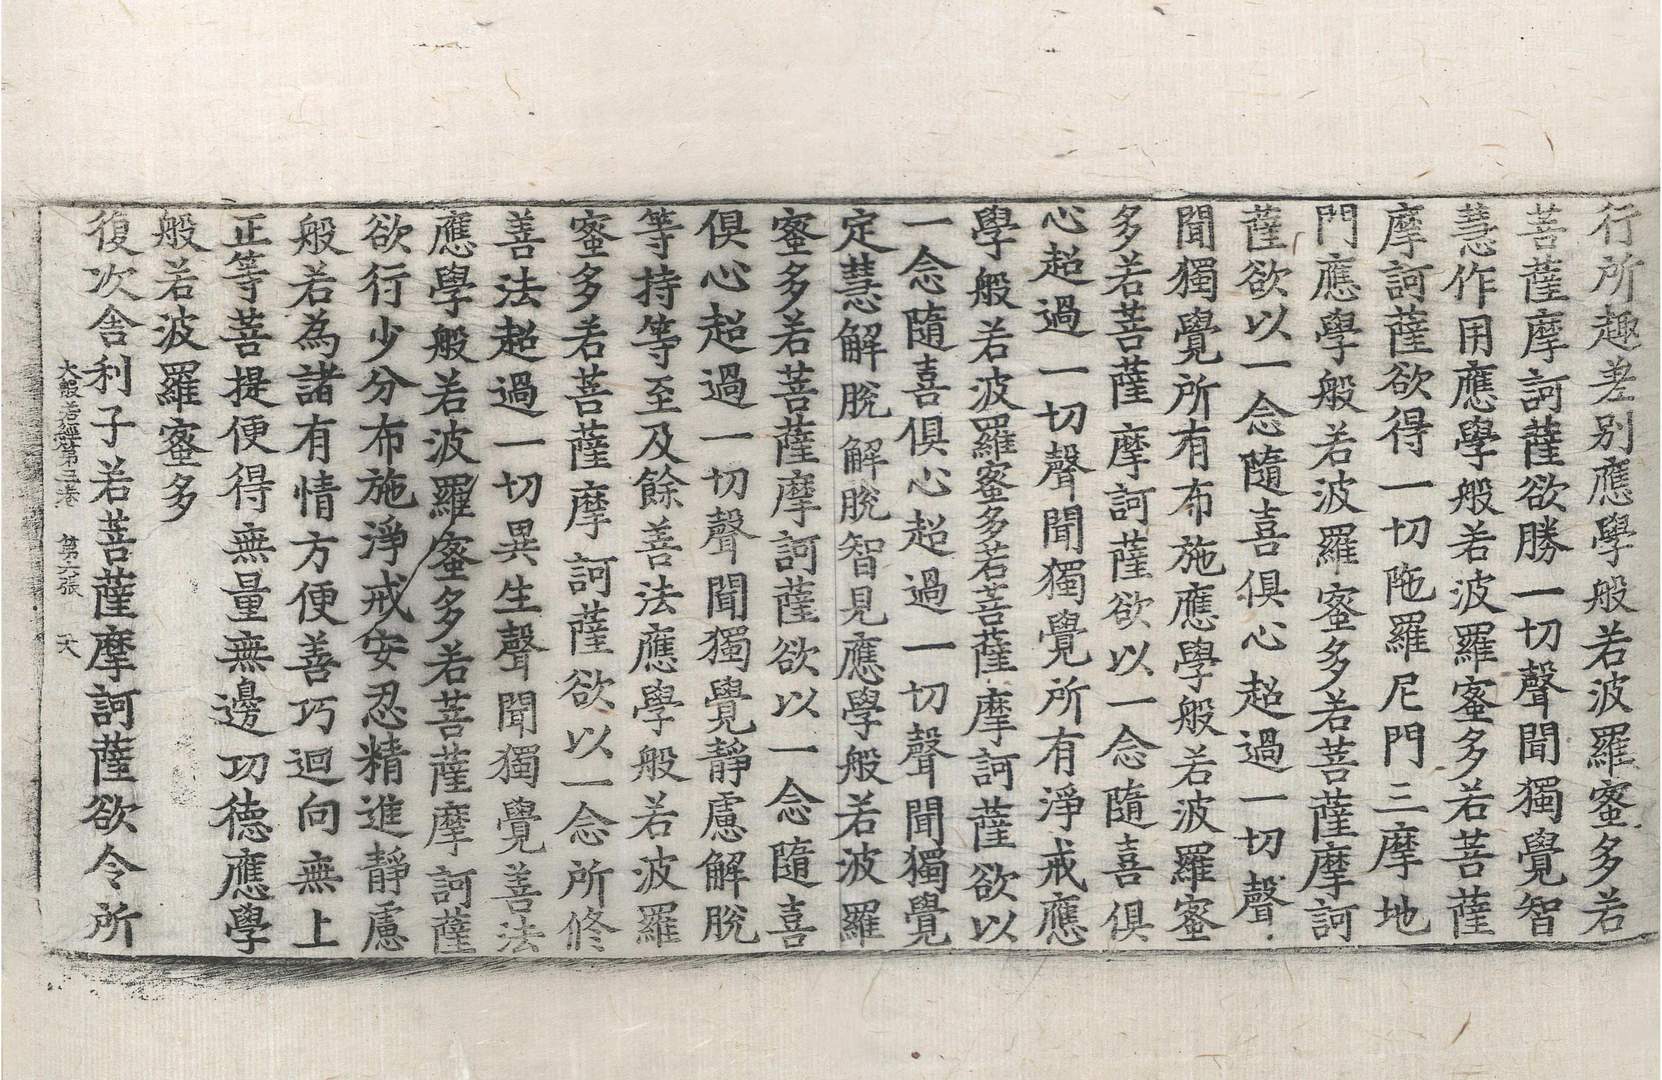 行所趣差別應學般若波羅蜜多若
菩薩摩訶薩欲勝一切聲聞獨覺智
慧作用應學般若波羅蜜多若菩薩
摩訶薩欲得一切陁羅尼門三摩地
門應學般若波羅蜜多若菩薩摩訶
薩欲以一念隨喜俱心超過一切聲
聞獨覺所有布施應學般若波羅蜜
多若菩薩摩訶薩欲以一念隨喜俱
心超過一切聲聞獨覺所有淨戒應
學般若波羅蜜多若菩薩摩訶薩欲以
一念隨喜俱心超過一切聲聞獨覺
定慧解脫解脫智見應學般若波羅
蜜多若菩薩摩訶薩欲以一念隨喜
俱心超過一切聲聞獨覺靜慮解脫
等持等至及餘善法應學般若波羅
蜜多若菩薩摩訶薩欲以一念所修
善法超過一切異生聲聞獨覺善法
應學般若波羅蜜多若菩薩摩訶薩
欲行少分布施淨戒安忍精進靜慮
般若為諸有情方便善巧迴向無上
正等菩提便得無量無邊功德應學
般若波羅蜜多
復次舍利子若菩薩摩訶薩欲令所
大般若經第三卷 第六張 天